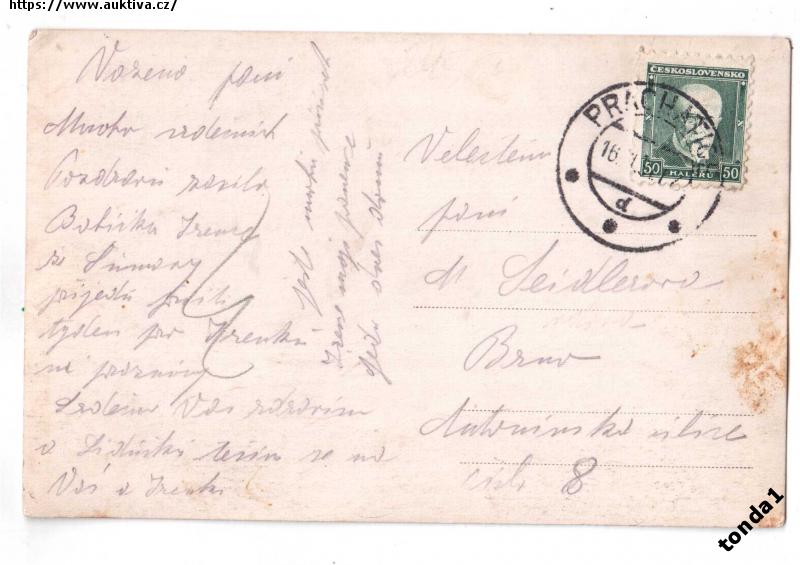 https://www.auktiva.cz/
Vážená paní
Mnoho srdečných
Pozdravů zasílá
Babička Irenca
ze Šumavy
přijedu příští
týden pro Irenku
na prázniny
Srdečně Vás zdravím
a Lidušku těším se na
Vás a Irenku
jedu dnes domů
ČESKOSLOVENSKO
50 HALÉŘŮ 50
PRACHATICE
16.
d
Velectěná
paní
M Seidlerova
Brno
Antonínská ulice
číslo 8
tonda1